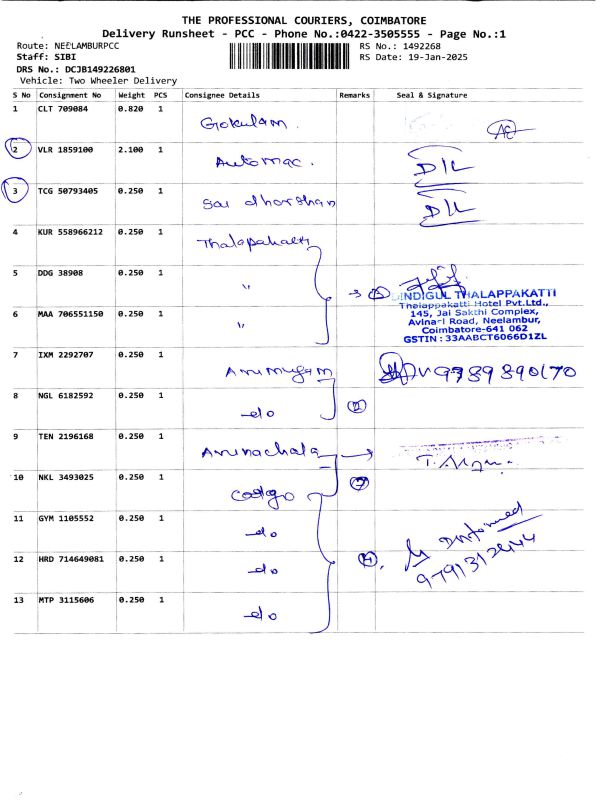 THE PROFESSIONAL COURIERS, COIMBATORE
Delivery Runsheet - PCC - Phone No.:0422-3505555 - Page No.:1
Route: NEELAMBURPCC
RS No.: 1492268
Staff: SIBI
RS Date: 19-Jan-2025
DRS No.: DCJB149226801
Vehicle: Two Wheeler Delivery
S No Consignment No Weight PCS Consignee Details Remarks Seal & Signature
1 CLT 709084 0.820 1 Gokulam.
2 VLR 1859100 2.100 1 Automac. D/L
3 TCG 50793405 0.250 1 Sai dharshan D/L
4 KUR 558966212 0.250 1 Thalapakatti
5 DDG 38908 0.250 1 "
DINDIGUL THALAPPAKATTI
Thalappakatti Hotel Pvt.Ltd.,
6 MAA 706551150 0.250 1 "
145, Jai Sakthi Complex,
Avinasi Road, Neelambur,
Coimbatore-641 062
GSTIN : 33AABCT6066D1ZL
7 IXM 2292707 0.250 1 Arumugam 9789890170
8 NGL 6182592 0.250 1 do 2
9 TEN 2196168 0.250 1 Arunachala
10 NKL 3493025 0.250 1
11 GYM 1105552 0.250 1 do
12 HRD 714649081 0.250 1 do
13 MTP 3115606 0.250 1 do